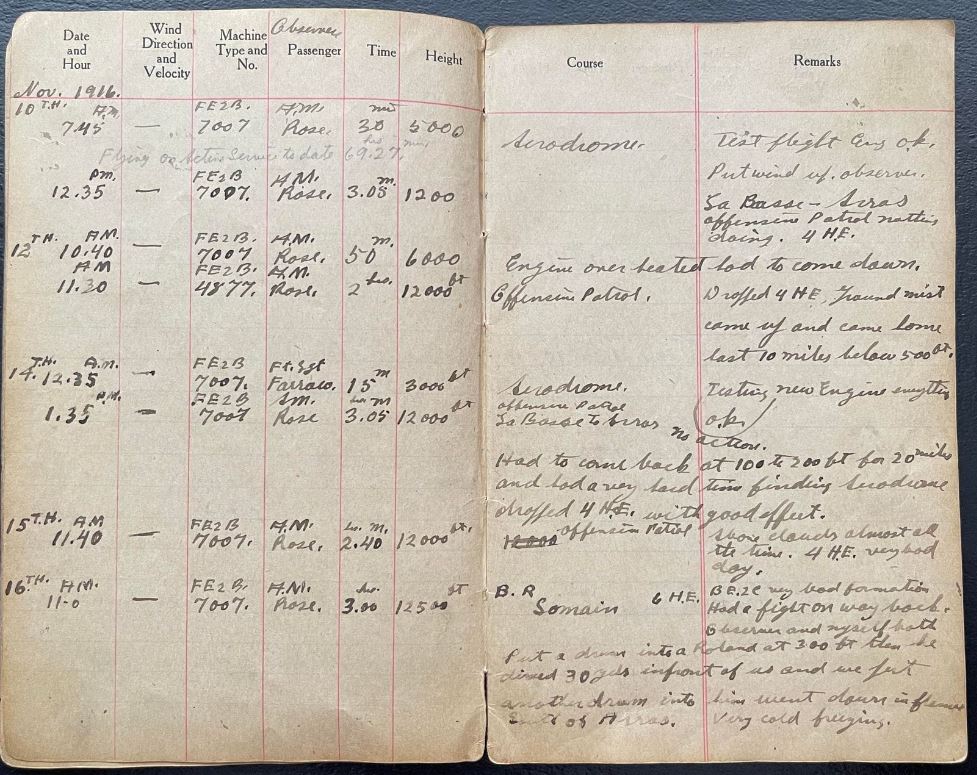 Date and Hour
Wind Direction and Velocity
Machine Type and No.
Observer
Passenger
Time
Height
Course
Remarks
Nov. 1916.
10TH. A.M. FE2B. A.M. min
7.45 — 7007 Rose. 30 5000
Aerodrome. Test flight Eng o.k.
Flying on Active Service to date 69.27. hrs min
Put wind up observer.
P.M. FE2B A.M. m.
12.35 — 7007. Rose. 3.05 1200
La Basse - Arras
offensive Patrol nothing
doing. 4 H.E.
12TH. A.M. FE2B. A.M. m.
10.40 — 7007 Rose. 50 6000
Engine over heated had to come down.
AM FE2B. A.M. hrs. ft
11.30 — 4877. Rose. 2 12000
Offensive Patrol. Dropped 4 HE, Ground mist
came up and came home
last 10 miles below 500 ft.
14.TH. A.M. FE2B Ft. Sgt m ft
12.35 — 7007. Farrow. 15 3000
Aerodrome. Testing new Engine
o.k.
P.M. FE2B m ft
1.35 — 7007 Rose 3.05 12000
offensive Patrol
La Basse to Arras no action.
Had to come back at 100 to 200 ft for 20 miles
and had a very hard time finding Aerodrome
dropped 4 H.E. with good effect.
15TH. AM FE2B A.M. m. ft.
11.40 — 7007. Rose. 2.40 12000
12000 offensive Patrol above clouds almost all
the time. 4 H.E. very bad
day.
16TH. A.M. FE2B. A.M. hrs. ft
11-0 — 7007. Rose. 3.00 12500
B.R. Somain 6 H.E. BE.2C very bad formation
Had a fight on way back.
Observer and myself both
Put a drum into a Roland at 300 ft then he
dived 30 yds infront of us and we put
another drum into him went down in flames
South of Arras. Very cold freezing.